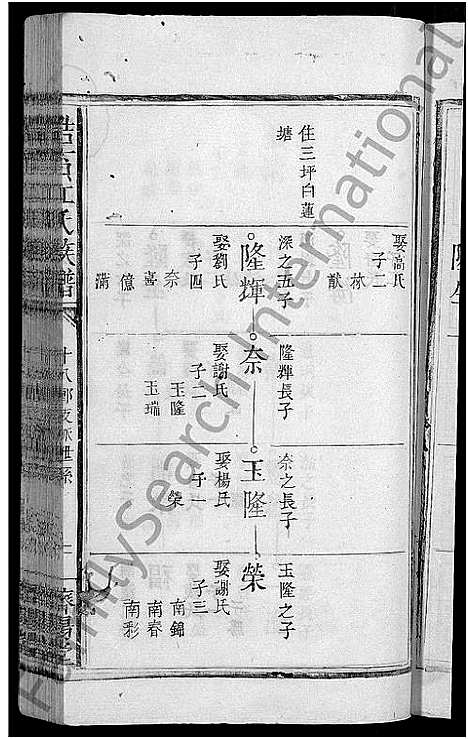 住三坪白蓮
塘
娶高氏
子二
猷
深之五子
隆輝
娶劉氏
子四
奈
萬
億
滿
隆輝長子
奈
娶謝氏
子二
玉隆
玉瑞
奈之長子
玉隆
娶楊氏
子一
榮
玉隆之子
榮
娶謝氏
子三
南錦
南春
南彩
江氏族譜
濟陽堂
FamilySearch International